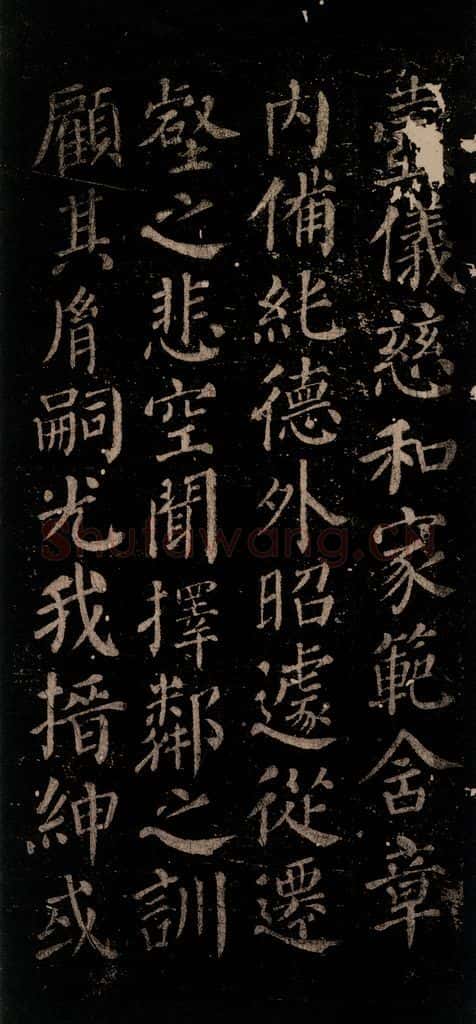 儀慈和家範含章
内備純德外昭遽從遷
壑之悲空聞擇鄰之訓
顧其胤嗣光我搢紳或
Shufawang.CN